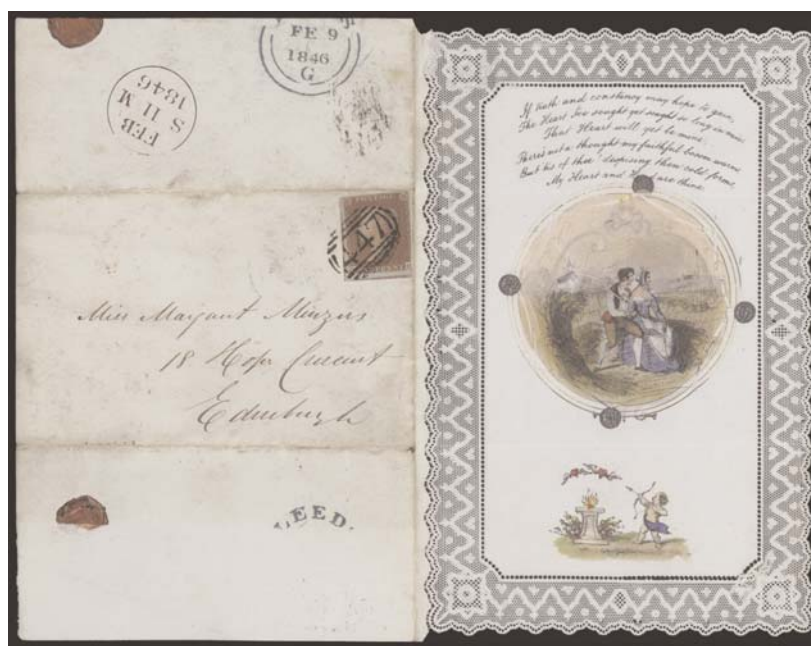 FE 9
1846
G
FEB
S 11 M
1846
447
Miss Margaret Minzies
18 Hope Crescent
Edinburgh
LEED
If truth and constancy may hope to gain,
The Heart I've sought yet sought so long in vain
That Heart will yet be mine.
There's not a thought my faithful bosom warms
But tis of thee despising then cold forms,
My Heart and Hand are thine.